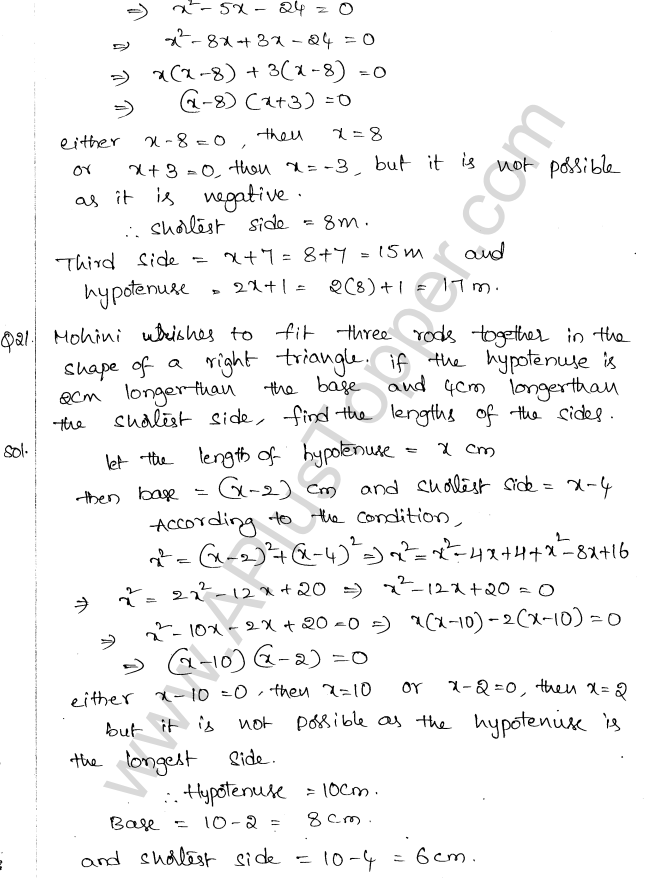 ⇒ x²-5x-24=0
⇒ x²-8x+3x-24=0
⇒ x(x-8)+3(x-8)=0
⇒ (x-8)(x+3)=0
either x-8=0, then x=8
or x+3=0, then x=-3, but it is not possible
as it is negative.
∴ shortest side = 8m.
Third side = x+7=8+7=15m and
hypotenuse = 2x+1= 2(8)+1 = 17m.
Q21. Mohini wishes to fit three rods together in the
shape of a right triangle. if the hypotenuse is
2cm longerthan the base and 4cm longerthan
the shortest side, find the lengths of the sides.
Sol. let the length of hypotenuse = x cm
then base = (x-2) cm and shortest side = x-4
According to the condition,
x²=(x-2)²+(x-4)² ⇒ x²=x²-4x+4+x²-8x+16
⇒ x²=2x²-12x+20 ⇒ x²-12x+20=0
⇒ x²-10x-2x+20=0 ⇒ x(x-10)-2(x-10)=0
⇒ (x-10)(x-2)=0
either x-10=0, then x=10 or x-2=0, then x=2
but it is not possible as the hypotenuse is
the longest side.
∴ Hypotenuse = 10cm.
Base = 10-2 = 8cm.
and shortest side = 10-4 = 6cm.
www.APlusTopper.com